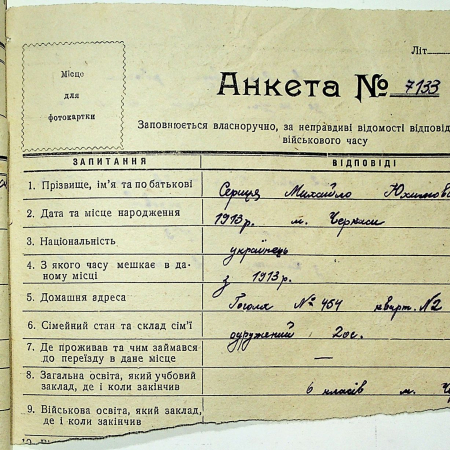 Літ
Місце
для
фотокартки
Анкета № 7133
Заповнюється власноручно, за неправдиві відомості відповід
військового часу
ЗАПИТАННЯ ВІДПОВІДІ
1. Прізвище, ім'я та по батькові Михайло
2. Дата та місце народження 1913 р. м. Черкаси
3. Національність українець
4. З якого часу мешкає в да-
ному місці з 1913 р.
5. Домашня адреса Гоголя № 454 кварт. №2
6. Сімейний стан та склад сім'ї одружений 2 ос.
7. Де проживав та чим займався
до переїзду в дане місце —
8. Загальна освіта, який учбовий
заклад, де і коли закінчив 6 класів м.
9. Військова освіта, який заклад,
де і коли закінчив